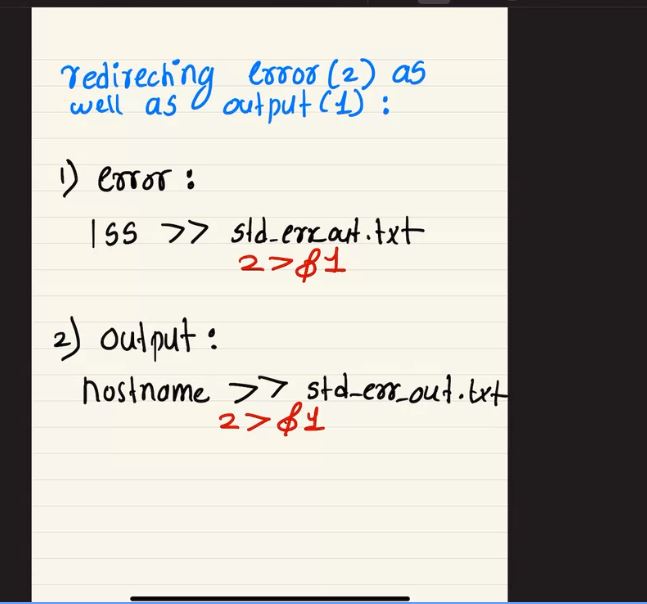 redirecting error(2) as
well as output(1) :
1) error :
lss >> std_err_out.txt
2>&1
2) output :
hostname >> std_err_out.txt
2>&1